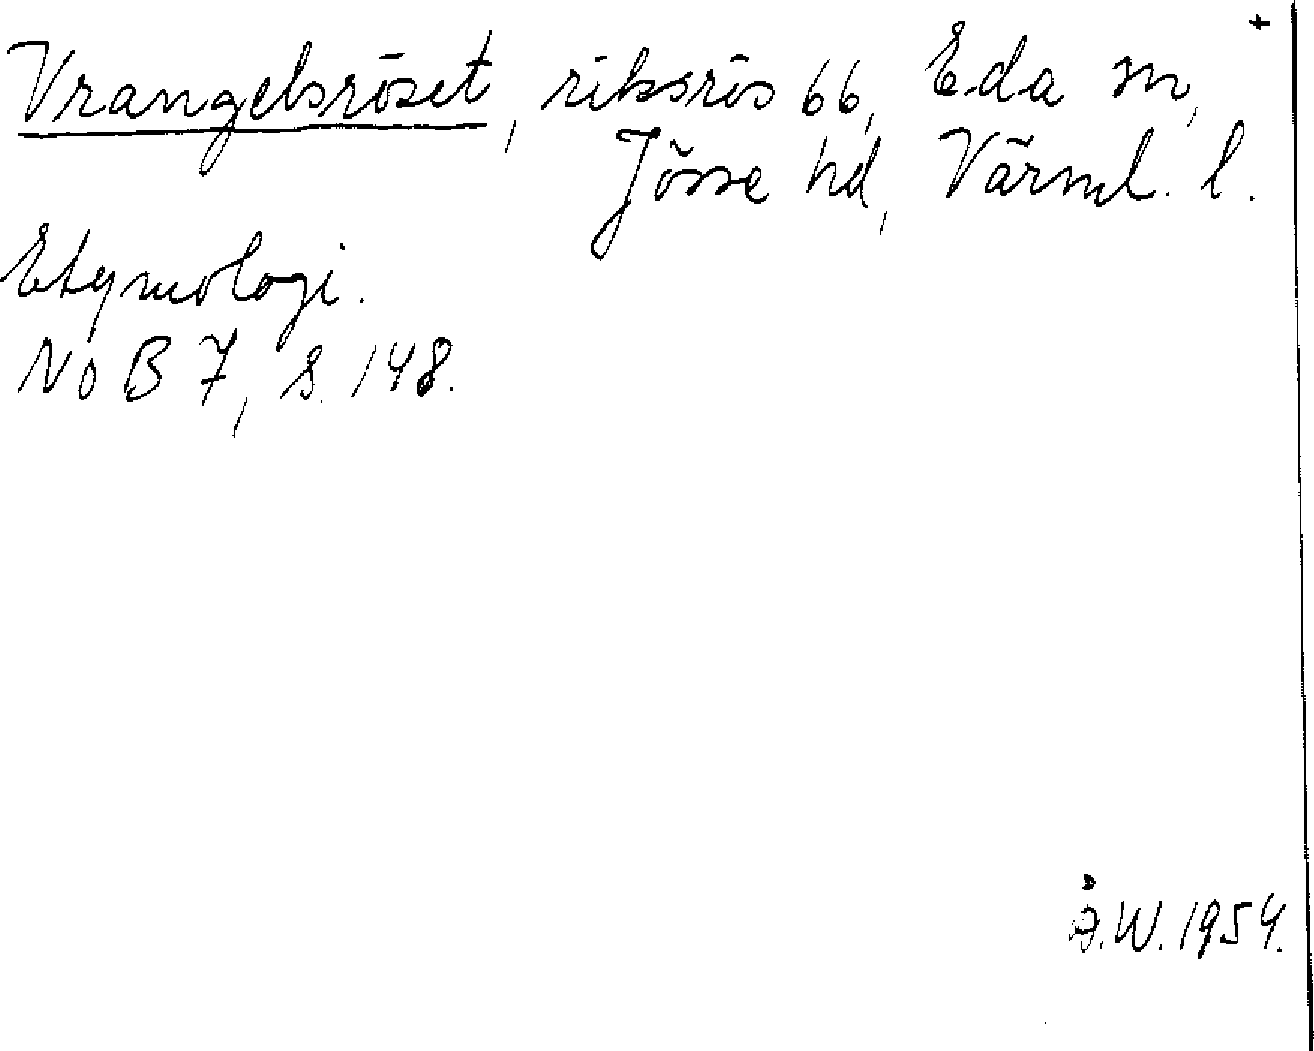 +
Vrangelsröset, riksrös 66, Eda sn,
Jösse hd, Värml. l.
Etymologi.
NoB 7, s. 148.
Å.W. 1954.